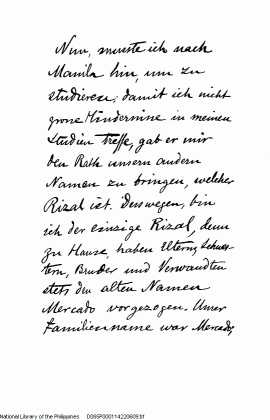 Nun, musste ich nach
Manila hin, um zu
studieren; damit ich nicht
grosse Hindernisse in meinen
Studien treffe, gab er mir
den Rath unsern andern
Namen zu bringen, welcher
Rizal ist. Deswegen, bin
ich der einzige Rizal, denn
zu Hause, haben Eltern, Schwes-
tern, Bruder und Verwandten
stets den alten Namen
Mercado vorgezogen. Unser
Familienname war Mercado,
National Library of the Philippines D095P00011422060S.tif